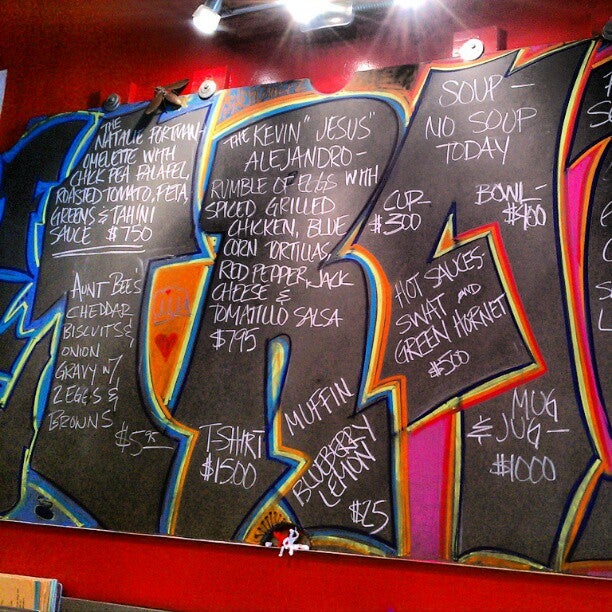 THE
NATALIE PORTMAN-
OMELETTE WITH
CHICK PEA FALAFEL,
ROASTED TOMATO, FETA,
GREENS & TAHINI
SAUCE $750
AUNT BEE'S
CHEDDAR
BISCUITS &
ONION
GRAVY W/
2 EGGS &
BROWNS
$5.95
THE KEVIN "JESUS"
ALEJANDRO-
RUMBLE OF EGGS WITH
SPICED GRILLED
CHICKEN, BLUE
CORN TORTILLAS,
RED PEPPER, JACK
CHEESE &
TOMATILLO SALSA
$795
T-SHIRT
$1500
MUFFIN
BLUEBERRY
LEMON
$25
SOUP-
NO SOUP
TODAY
CUP-
$300
BOWL-
$400
HOT SAUCES-
SWAT AND
GREEN HORNET
$500
MUG
& JUG-
$1000